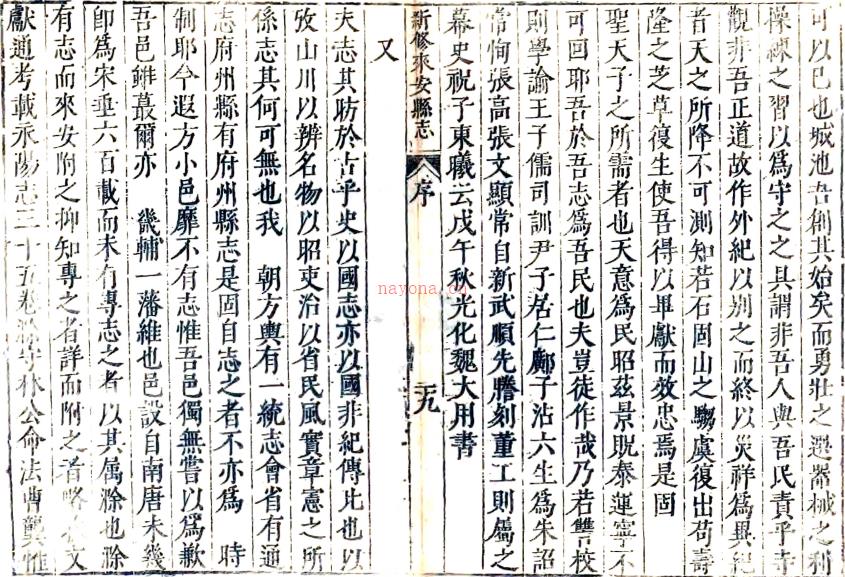 可以已也城池吾創其始矣而勇壯之選器械之利
操練之習以爲守之之具謂非吾人與吾民責乎寺
觀非吾正道故作外紀以别之而終以災祥爲異紀
者天之所降不可測知若石固山之騶虞復出苟壽
逢之芝草復生使吾得以畢獻而效忠焉是固
聖天子之所需者也天意爲民昭茲景貺泰運寧不
可回耶吾於吾志爲吾民也夫豈徒作哉乃若讐校
則學諭王子儒司訓尹子居仁鄺子沾六生爲朱詔
常恂張高張文顯常自新武順先謄刻董工則屬之
幕史祝子東曦云戊午秋光化魏大用書
新修來安縣志
序
二十九
又
夫志其昉於古乎史以國志亦以國非紀傳比也以
攷山川以辨名物以昭吏治以省民風實章憲之所
係志其何可無也我 朝方輿有一統志會省有通
志府州縣有府州縣志是固自志之者不亦爲 時
制耶今遐方小邑靡不有志惟吾邑獨無嘗以爲歉
吾邑雖蕞爾亦 畿輔一藩維也邑設自南唐未幾
卽爲宋垂六百載而未有專志之者以其属滁也滁
有志而來安附之抑知專之者詳而附之者略 文
獻通考載永陽志三十五卷滁守林公命法曹龔惟
nayona.cn